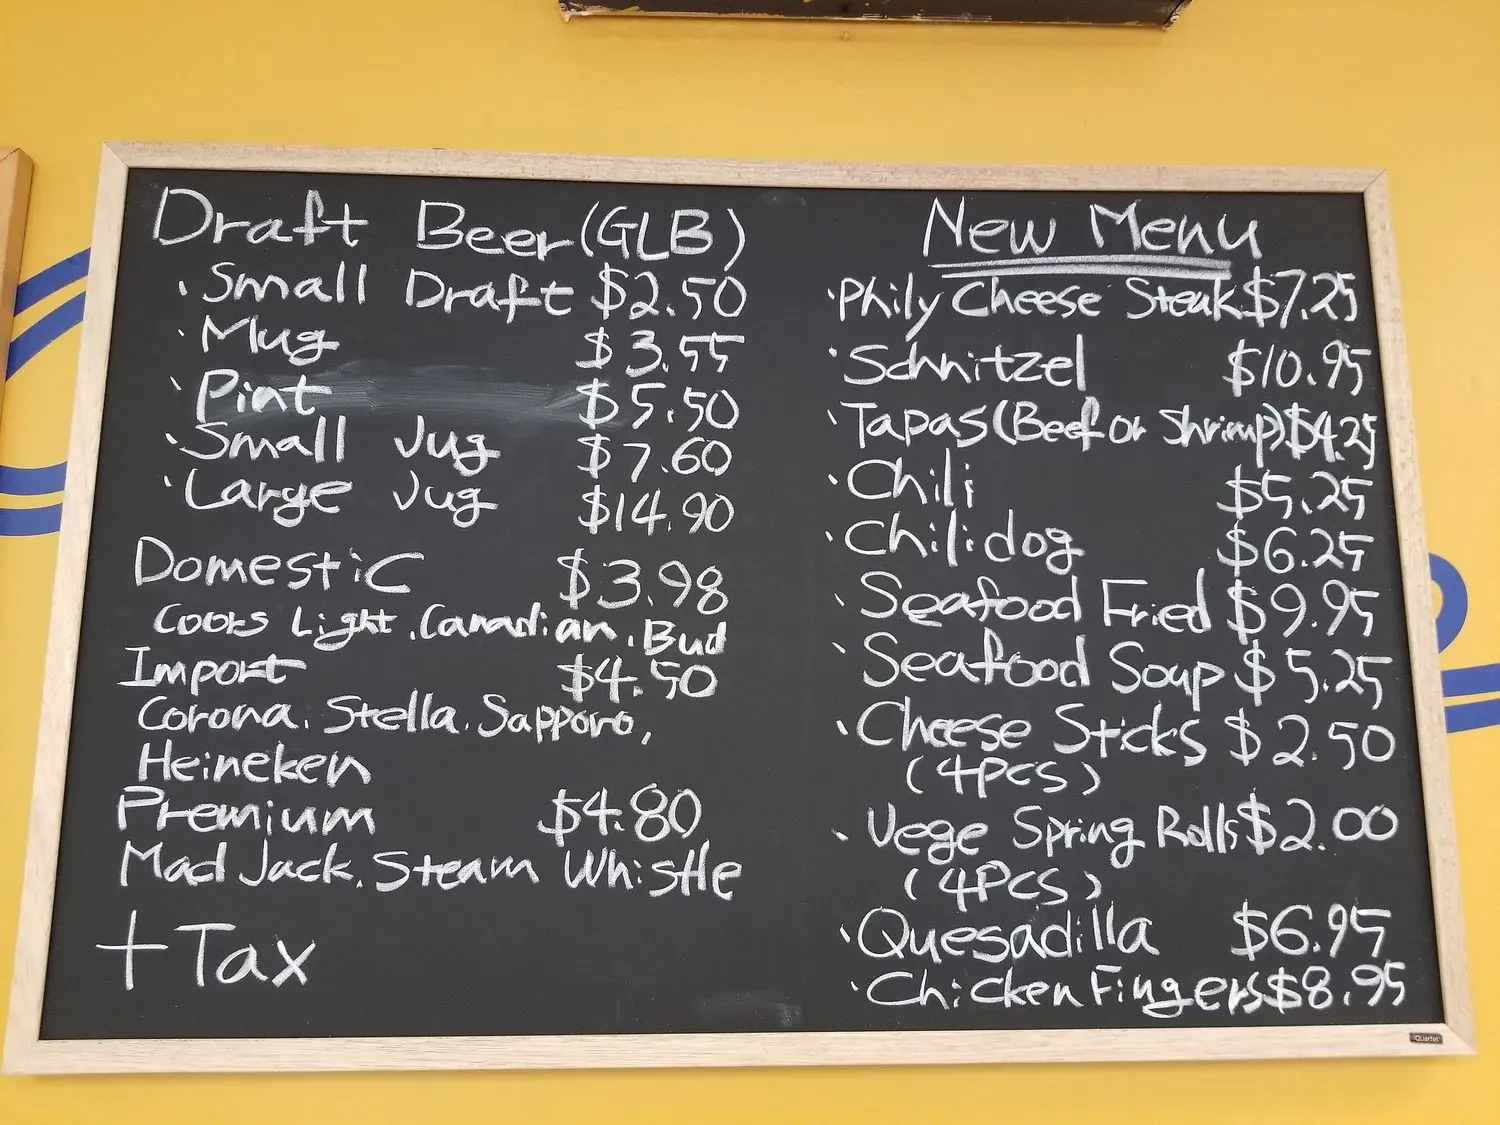 Draft Beer (GLB)
· Small Draft $2.50
· Mug $3.55
· Pint $5.50
· Small Jug $7.60
· Large Jug $14.90
Domestic $3.98
Coors Light, Canadian, Bud
Import $4.50
Corona, Stella, Sapporo,
Heineken
Premium $4.80
Mad Jack, Steam Whistle
+ Tax
New Menu
· Phily Cheese Steak $7.25
· Schnitzel $10.95
· Tapas (Beef or Shrimp) $4.25
· Chili $5.25
· Chili dog $6.25
· Seafood Fried $9.95
· Seafood Soup $5.25
· Cheese Sticks $2.50
(4PCS)
· Vege Spring Rolls $2.00
(4PCS)
· Quesadilla $6.95
· Chicken Fingers $8.95
Quartet